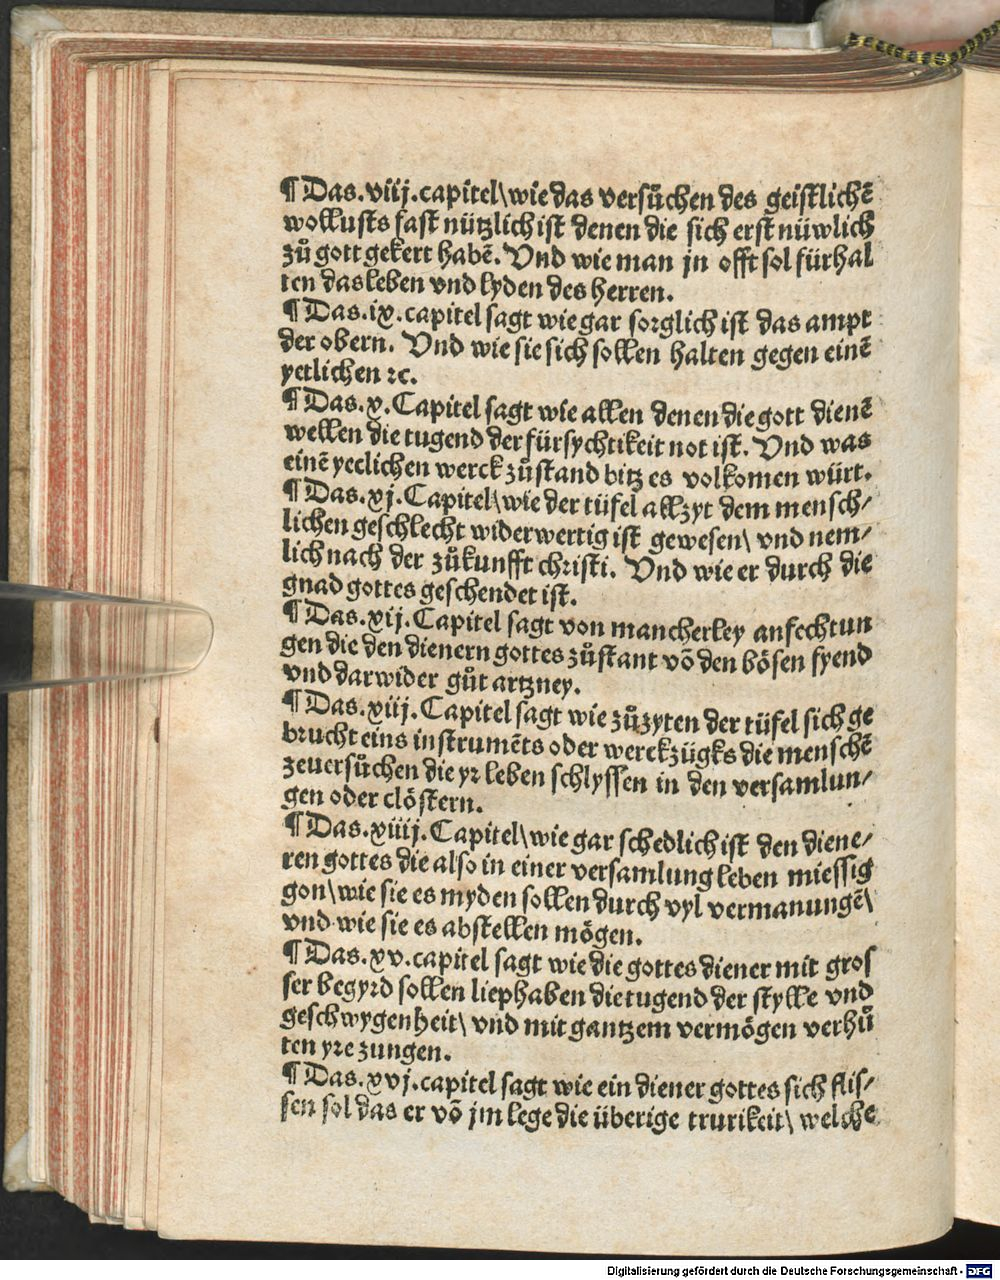 ¶ Das.viij.capitel\wie das versůchen des geistlichē
wollusts fast nützlich ist denen die sich erst nüwlich
zů gott gekert habē. Vnd wie man jn offt sol fürhal
ten das leben vnd lyden des herren.
¶ Das.ix.capitel sagt wie gar sorglich ist das ampt
der obern. Vnd wie sie sich sollen halten gegen einē
yetlichen ꝛc.
¶ Das.x.Capitel sagt wie allen denen die gott dienē
wellen die tugend der fürsychtikeit not ist. Vnd was
einē yeclichen werck zůstand bitz es volkomen würt.
¶ Das.xj.Capitel\wie der tüfel allzyt dem mensch/
lichen geschlecht widerwertig ist gewesen\ vnd nem/
lich nach der zůkunfft christi. Vnd wie er durch die
gnad gottes geschendet ist.
¶ Das.xij.Capitel sagt von mancherley anfechtun
gen die den dienern gottes zůstant vō den bösen fyend
vnd darwider gůt artzney.
¶ Das.xiij.Capitel sagt wie zůzyten der tüfel sich ge
brucht eins instrumēts oder werckzügks die menschē
zeuersůchen die yr leben schlyssen in den versamlun/
gen oder clöstern.
¶ Das.xiiij.Capitel\wie gar schedlich ist den diene/
ren gottes die also in einer versamlung leben miessig
gon\wie sie es myden sollen durch vyl vermanungē\
vnd wie sie es abstellen mögen.
¶ Das.xv.capitel sagt wie die gottes diener mit gros
ser begyrd sollen liephaben die tugend der stylle vnd
geschwygenheit\ vnd mit gantzem vermögen verhů
ten yre zungen.
¶ Das.xvj.capitel sagt wie ein diener gottes sich flis/
sen sol das er vō jm lege die überige trurikeit\ welche
Digitalisierung gefördert durch die Deutsche Forschungsgemeinschaft - DFG